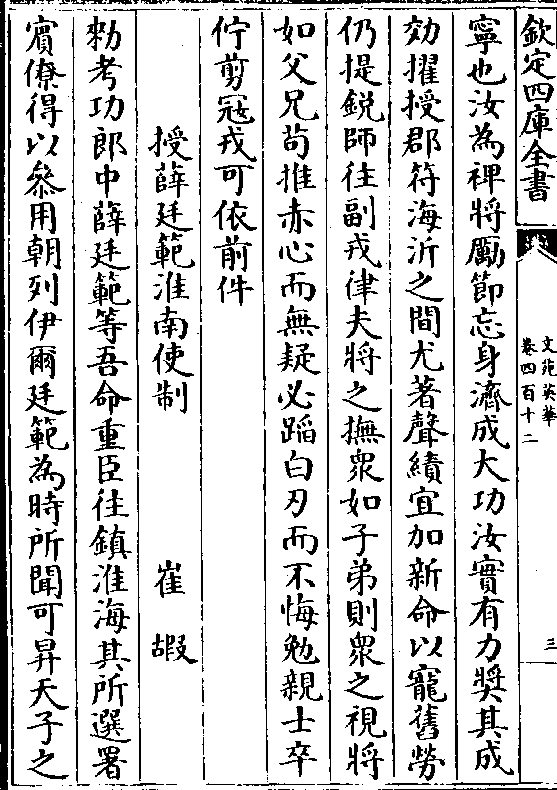 欽定四庫全書
文苑英華
卷四百十二
三
寧也汝為裨將勵節忘身濟成大功汝實有力奬其成
効擢授郡符海沂之間尤著聲績宜加新命以寵舊勞
仍提鋭師往副戎律夫將之撫衆如子弟則衆之視將
如父兄苟推赤心而無疑必蹈白刃而不悔勉親士卒
佇剪冦戎可依前件
授薛廷範淮南使制
崔嘏
勅考功郎中薛廷範等吾命重臣往鎮淮海其所選署
賓僚得以叅用朝列伊爾廷範為時所聞可昇天子之